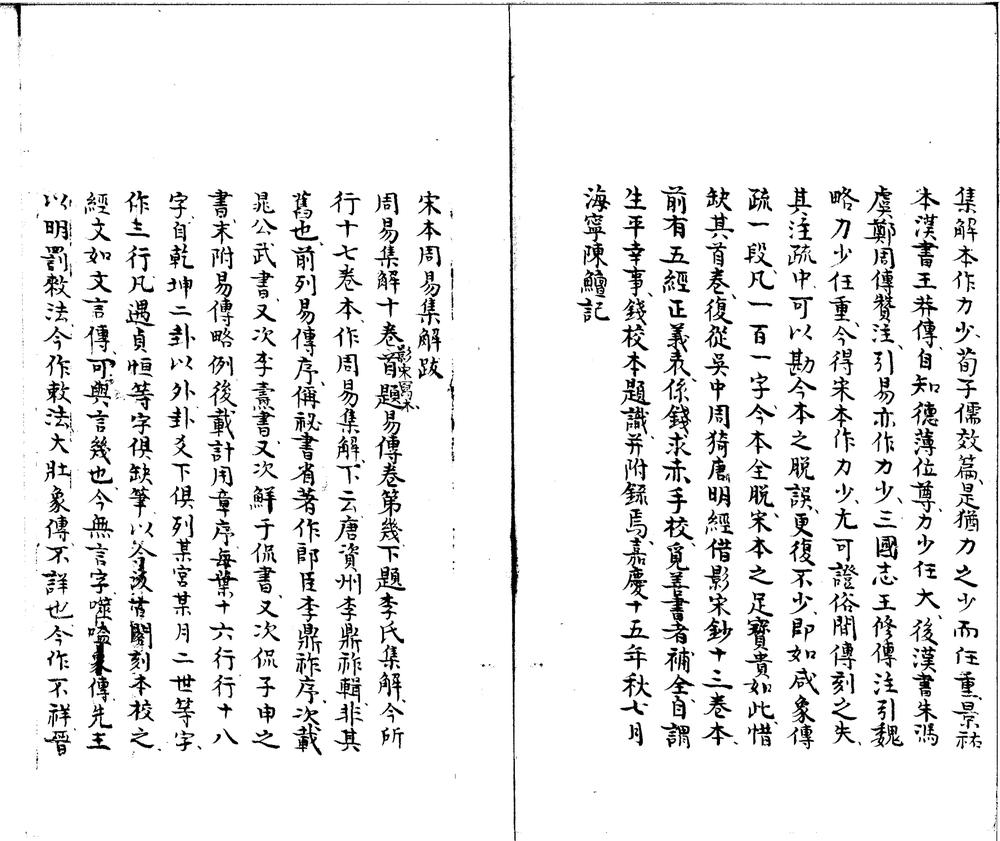 集解本作力少荀子儒效篇是猶力之少而任重景祐
本漢書王莽傳自知德薄位尊力少任大後漢書朱馮
虞鄭周傳贊注引易亦作力少三國志王修傳注引魏
略力少任重今得宋本作力少尤可證俗間傳刻之失
其注疏中可以勘今本之脫誤更復不少即如咸象傳
疏一段凡一百一字今本全脫宋本之足寶貴如此惜
缺其首卷復從吳中周猗唐明經借影宋鈔十三卷本
前有五經正義表係錢求赤手校覓善書者補全自謂
生平幸事錢校本題識并附錄焉嘉慶十五年秋七月
海寧陳鱣記
宋本周易集解跋
周易集解十卷影宋寫本首題易傳卷第幾下題李氏集解今所
行十七卷本作周易集解下云唐資州李鼎祚輯非其
舊也前列易傳序偁祕書省著作郎臣李鼎祚序次載
晁公武書又次李燾書又次鮮于侃書又次侃子申之
書末附易傳略例後載計用章序每葉十六行行十八
字自乾坤二卦以外卦爻下俱列某宮某月二世等字
作三行凡遇貞恒等字俱缺筆以今汲古閣刻本校之
經文如文言傳可與言幾也今無言字噬嗑象傳先王
以明罰敕法今作敕法大壯象傳不詳也今作不祥晉